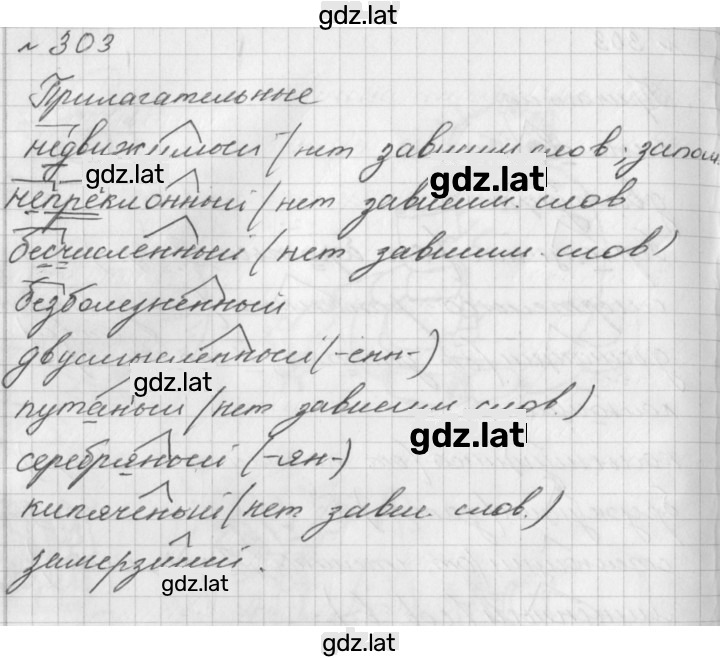 gdz.lat
№ 303
Прилагательные
недвижимый (нет зависим. слов; запом.
gdz.lat gdz.lat
непреклонный (нет зависим. слов
бесчисленный (нет зависим. слов)
безболезненный
двусмысленный (-енн-)
gdz.lat
путаный (нет зависим. слов.)
gdz.lat
серебряный (-ян-)
кипячёный (нет завис. слов.)
замерзший.
gdz.lat
gdz.lat